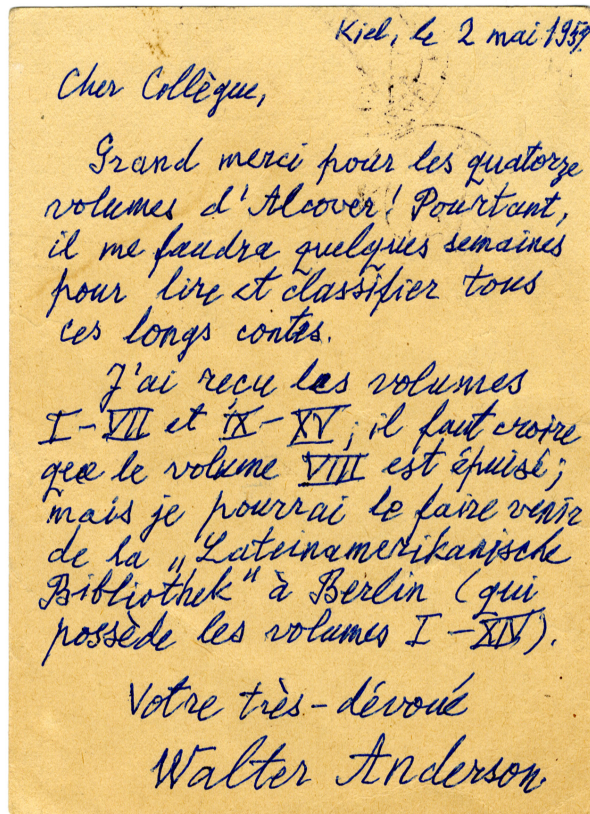 Kiel, le 2 mai 1959
Cher Collègue,
Grand merci pour les quatorze
volumes d'Alcover! Pourtant,
il me faudra quelques semaines
pour lire et classifier tous
ces longs contes.
J'ai reçu les volumes
I-VII et IX-XV; il faut croire
que le volume VIII est épuisé;
mais je pourrai le faire venir
de la „Lateinamerikanische
Bibliothek" à Berlin (qui
possède les volumes I-XIV).
Votre très-dévoué
Walter Anderson